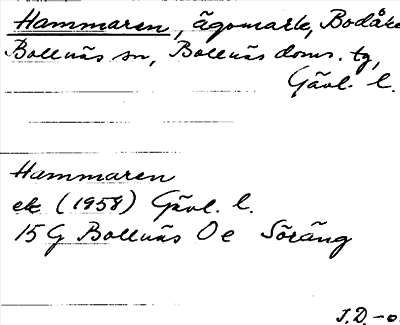 Hammaren, ägomark, Bodåke
Bollnäs sn, Bollnäs doms. tg,
Gävl. l.
Hammaren
ek (1958) Gävl. l.
15G Bollnäs Oe Söräng
J.D.-o